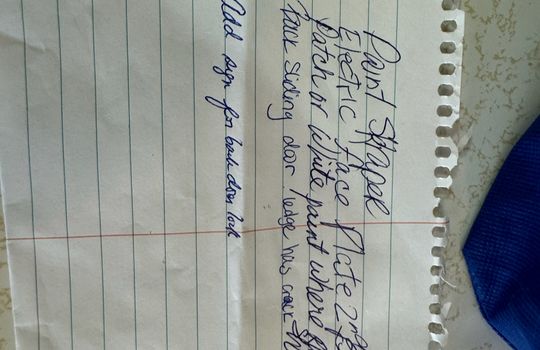 Paint SKraper
Electric Face Plate 2nd
Patch or White paint where
back sliding door ledge has
Add sign for back door lock